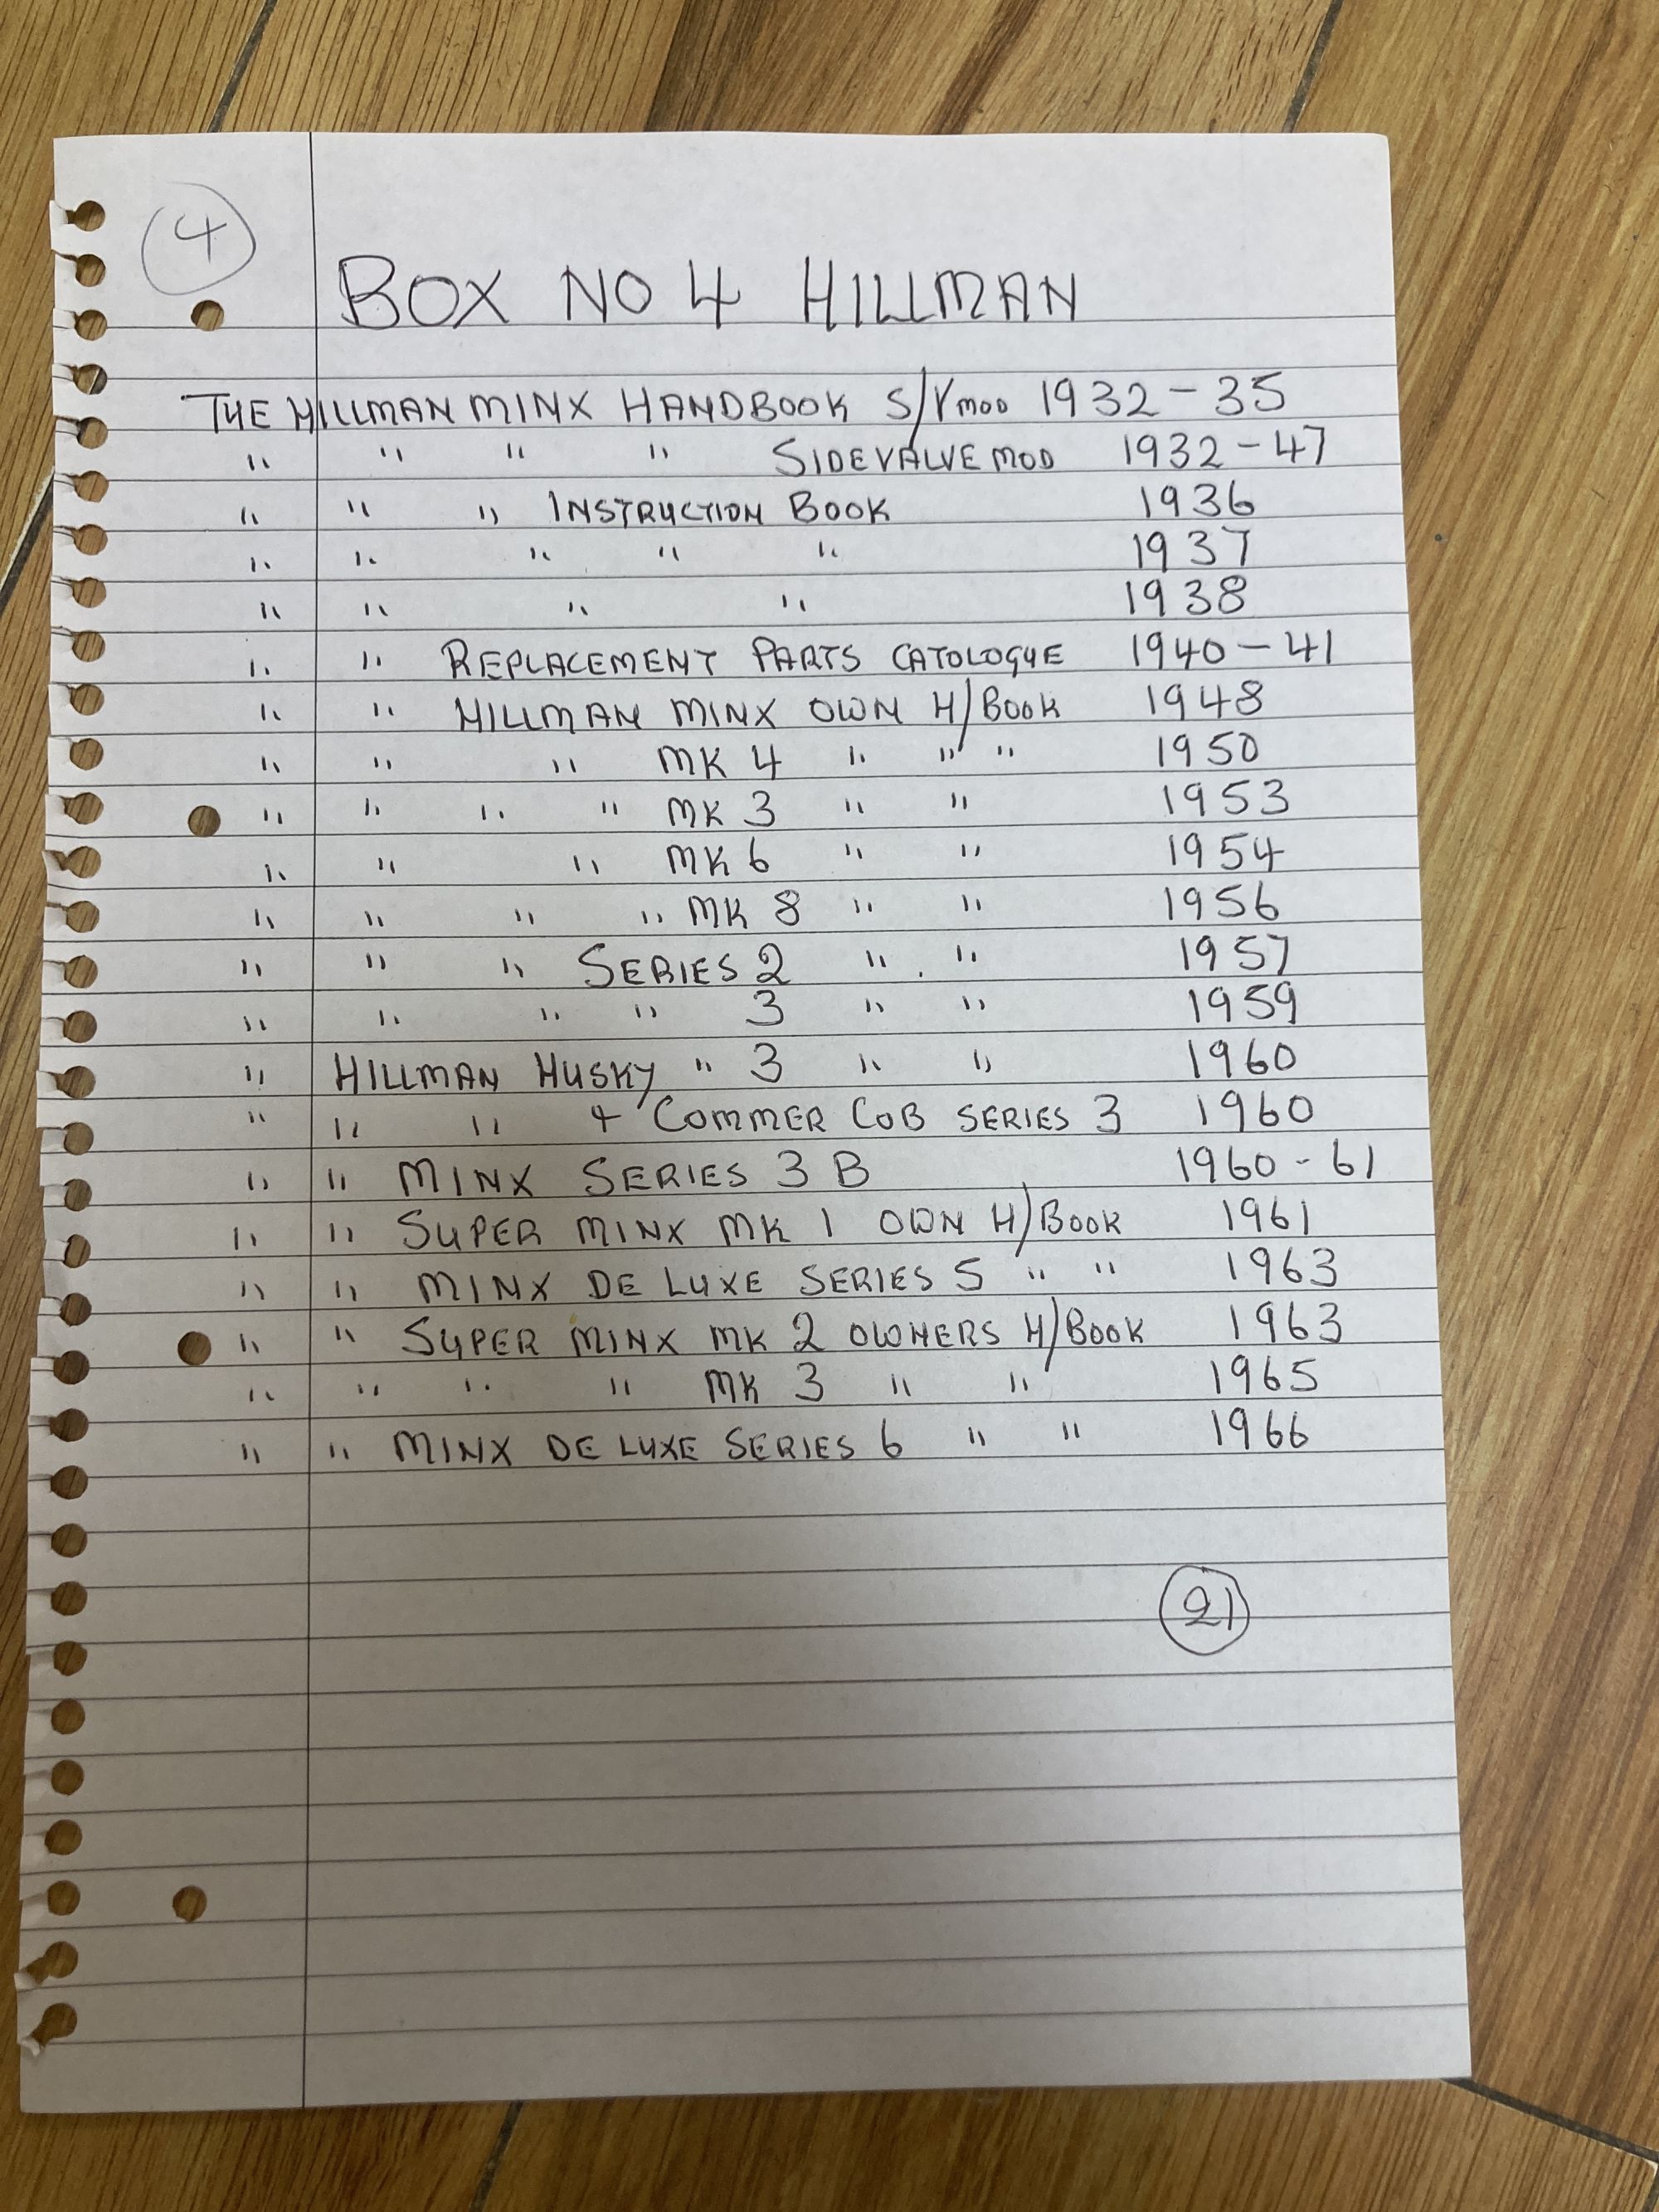 4
BOX NO 4 HILLMAN
THE HILLMAN MINX HANDBOOK S/V MOD 1932-35
" " " " SIDEVALVE MOD 1932-47
" " " INSTRUCTION BOOK 1936
" " " " " 1937
" " " " 1938
" " REPLACEMENT PARTS CATOLOGUE 1940-41
" " HILLMAN MINX OWN H/BOOK 1948
" " " MK 4 " " " 1950
" " " " MK 3 " " 1953
" " " MK 6 " " 1954
" " " " MK 8 " " 1956
" " " SERIES 2 " " 1957
" " " " 3 " " 1959
" HILLMAN HUSKY " 3 " " 1960
" " " + COMMER COB SERIES 3 1960
" " MINX SERIES 3 B 1960-61
" " SUPER MINX MK 1 OWN H/BOOK 1961
" " MINX DE LUXE SERIES 5 " " 1963
" " SUPER MINX MK 2 OWNERS H/BOOK 1963
" " " " MK 3 " " 1965
" " MINX DE LUXE SERIES 6 " " 1966
21